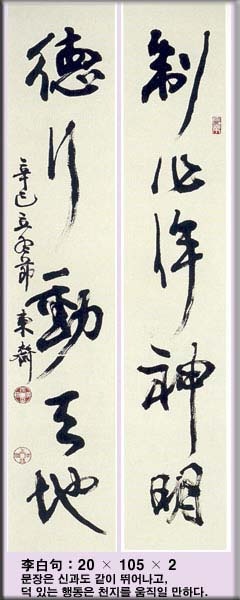 制作侔神明
德行動天地
辛巳立冬
李白句 : 20 × 105 × 2
문장은 신과도 같이 뛰어나고,
덕 있는 행동은 천지를 움직일 만하다.